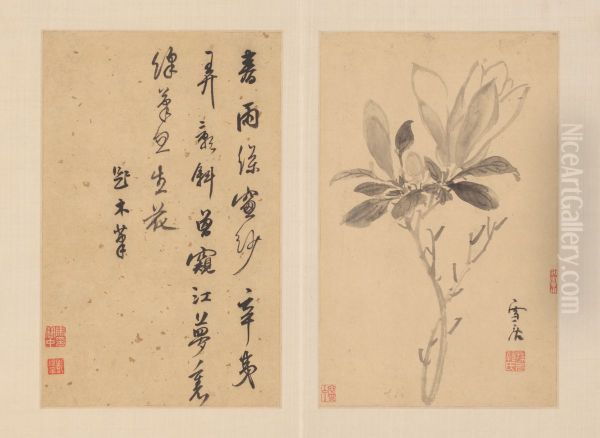 春雨濕窗紗辛夷
弄影斜曾窺江夢裏
絳筆忽生花
題木筆
雪居
NiceArtGallery.com